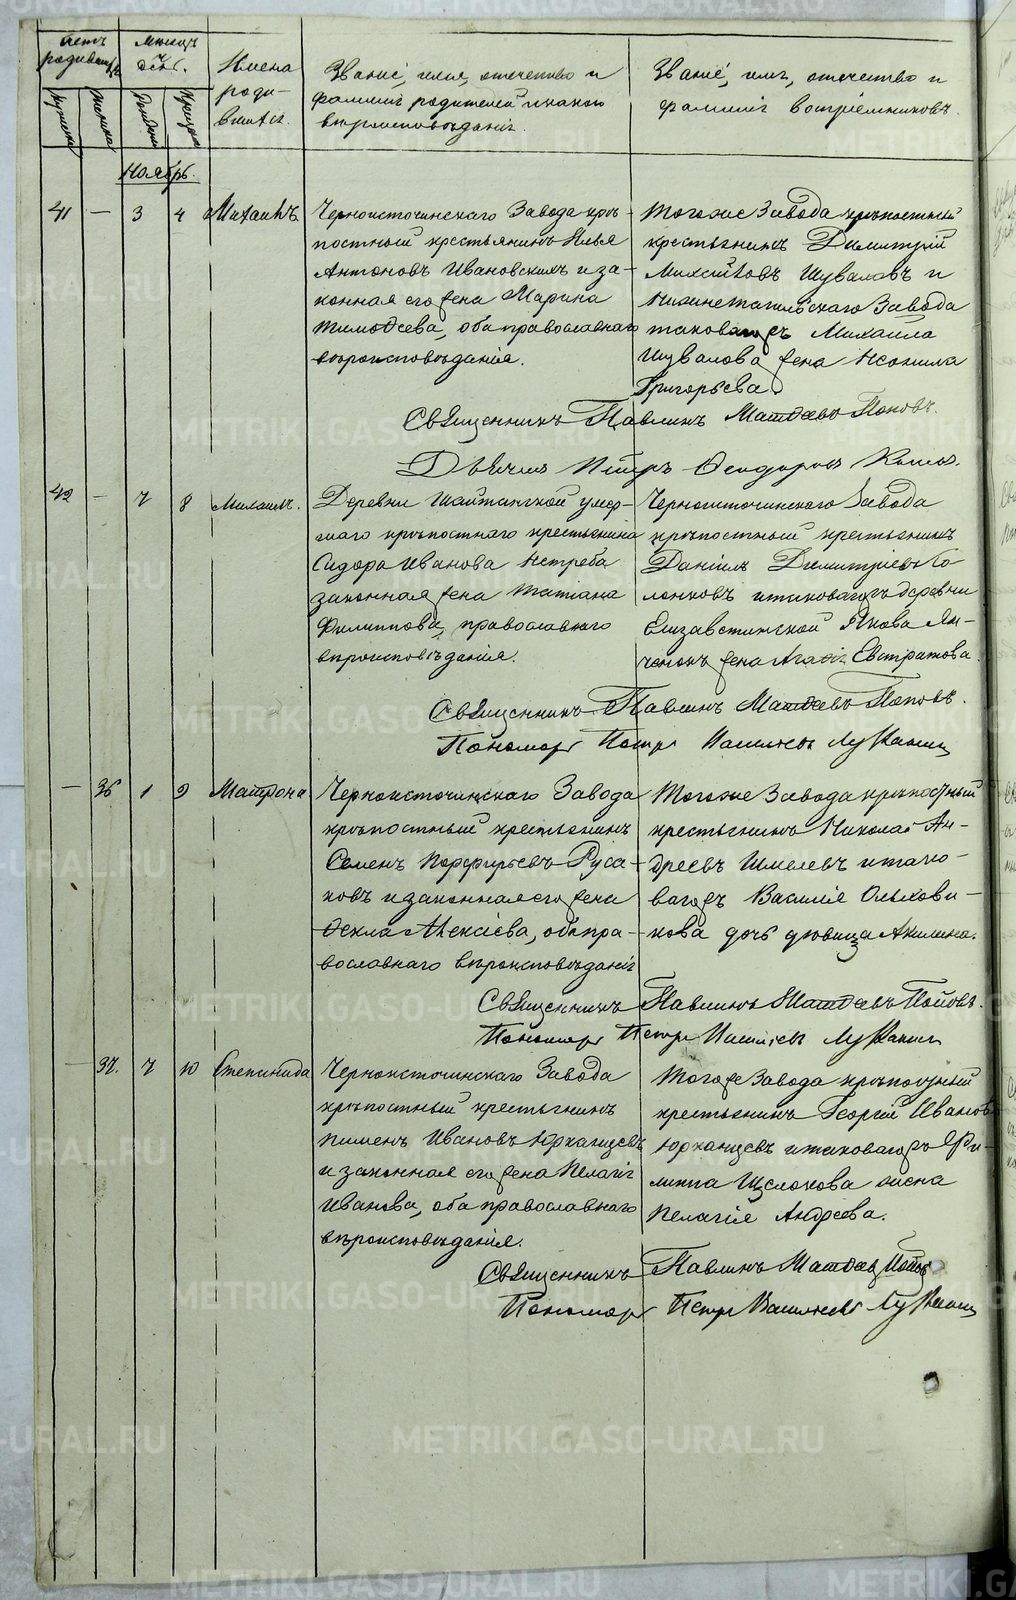 Счетъ родившихъ
Мѣсяцъ и день.
Имена роди-
вшихся.
Званіе, имя, отчество и
фамилія родителей и какого
вѣроисповѣданія.
Званіе, имя, отчество и
фамилія воспріемниковъ.
Ноябрь.
41 — 3 4 Михаилъ
Черноисточинскаго Завода крѣ-
постный крестьянинъ Илья
Антоновъ Ивановскихъ и за-
конная его жена Марина
Тимоѳеева, оба православнаго
вѣроисповѣданія.
Тогоже Завода крѣпостный
крестьянинъ Димитрій
Шуваловъ и
Нижнетагильскаго Завода
таковагожъ Михаила
Шувалова жена Неонила
Григорьева.
Священникъ Павлинъ Матѳеевъ Поповъ.
Дьячекъ Петръ Ѳеодоровъ
42 — 7 8 Михаилъ.
Деревни Шайтанской умер-
шаго крѣпостнаго крестьянина
Сидора Иванова Ястреба
законная жена Татіана
Филиппова, православнаго
вѣроисповѣданія.
Черноисточинскаго Завода
крѣпостный крестьянинъ
Даніилъ Димитріевъ Го-
лонковъ и таковагожъ деревни
Елизаветинской Якова Ян-
ченокъ жена Агафія Евстратова.
Священникъ Павлинъ Матѳеевъ Поповъ.
Пономарь Петръ Васильевъ Луканинъ
— 36 1 9 Матрона
Черноисточинскаго Завода
крѣпостный крестьянинъ
Семенъ Порфирьевъ Руса-
ковъ и законная его жена
Ѳекла Алексіева, оба пра-
вославнаго вѣроисповѣданія
Тогоже Завода крѣпостный
крестьянинъ Николай Ан-
дреевъ Шмелевъ и тако-
вагожъ Василія Ольхови-
кова дочь дѣвица Акилина.
Священникъ Павлинъ Матѳеевъ Поповъ.
Пономарь Петръ Васильевъ Луканинъ
— 37. 7 10 Степанида
Черноисточинскаго Завода
крѣпостный крестьянинъ
Пименъ Ивановъ Юрханцевъ
и законная его жена Пелагія
Иванова, оба православнаго
вѣроисповѣданія.
Тогоже Завода крѣпостный
крестьянинъ Георгій Ивановъ
Юрханцевъ и таковагожъ Фи-
липпа Щелокова жена
Пелагіе Андреева.
Священникъ Павлинъ Матѳеевъ Поповъ
Пономарь Петръ Васильевъ Луканинъ
METRIKI.GASO-URAL.RU